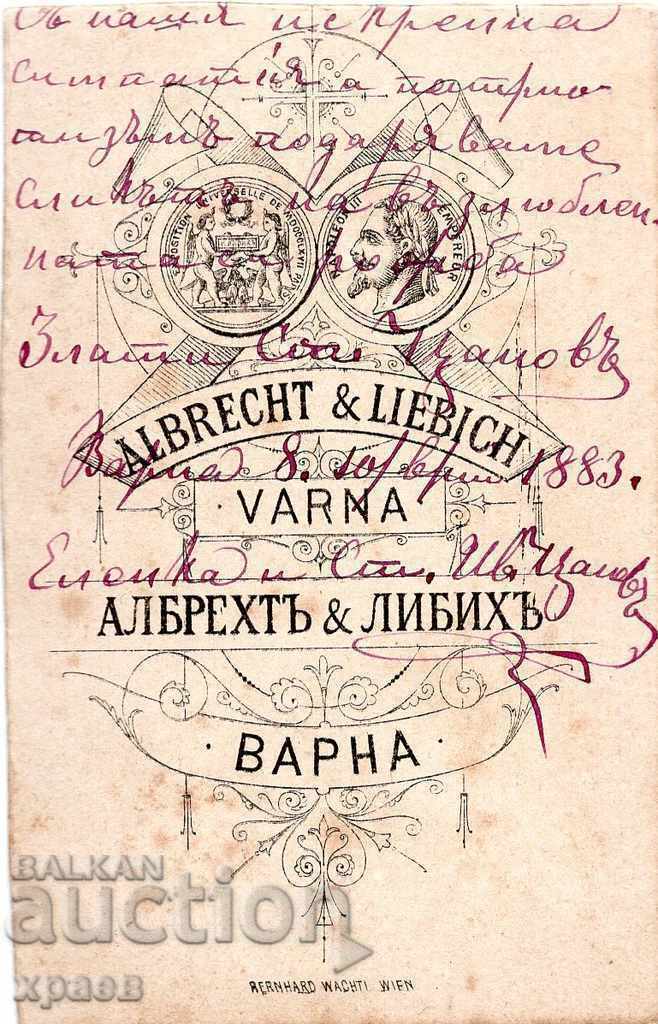 Въ наша искренна
симпатия и патрио-
тизъмъ подаряваме
сликътъ на възлюблен-
ната си
EXPOSITION UNIVERSELLE DE MDCCCLXVII PARIS
NAPOLEON III EMPEREUR
Злати Ст. Цановъ
ALBRECHT & LIEBICH
Варна 8. 1883.
VARNA
Еленка и Ст. Ив. Цановъ
АЛБРЕХТЪ & ЛИБИХЪ
· ВАРНА ·
BALKAN
auction
храев
BERNHARD WACHTL WIEN